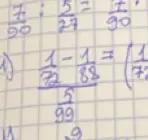 7/90 : 5/27 = 7/90 ·
1) (1/72 - 1/88) / (5/99) = (1/72
9